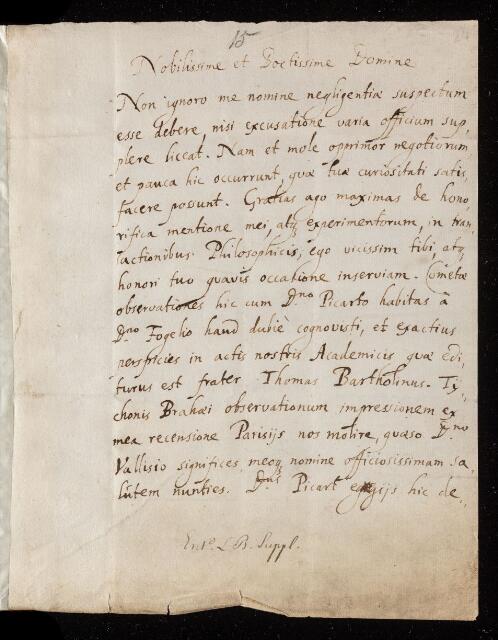 15
Nobilissime et Doctissime Domine
Non ignoro me nomine negligentiæ suspectum
esse debere, nisi excusatione varia officium sup,
plere liceat. Nam et mole opprimor negotiorum,
et pauca hic occurrunt, quæ tuæ curiositati satis,
facere possunt. Gratias ago maximas de hono,
rifica mentione mei, atq experimentorum, in tran,
sactionibus Philosophicis, ego vicissim tibi atq,
honori tuo quavis occatione inserviam. Cometæ
observationes hic cum Dno Picarto habitas à
Dno Fogelio haud dubiè cognovisti, et exactius
perspicies in actis nostris Academicis quæ edi,
turus est frater Thomas Bartholinus. Ty,
chonis Brahæi observationum impressionem ex
mea recensione Parisijs nos molire, quæso Dno
Vallisio significes, meoq nomine officiosissimam sa,
lutem nunties. Dnus Picart hic de,
Entd. L.B. Suppl.